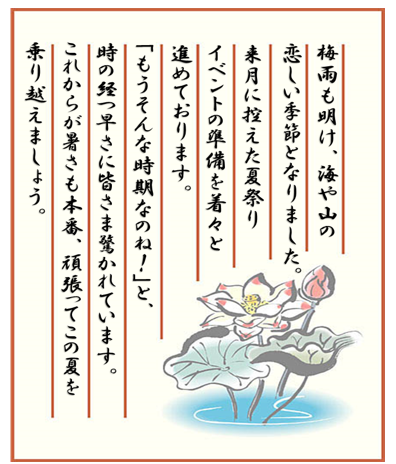 梅雨も明け、海や山の
恋しい季節となりました。
来月に控えた夏祭り
イベントの準備を着々と
進めております。
「もうそんな時期なのね!」と、
時の経つ早さに皆さま驚かれています。
これからが暑さも本番、頑張ってこの夏を
乗り越えましょう。